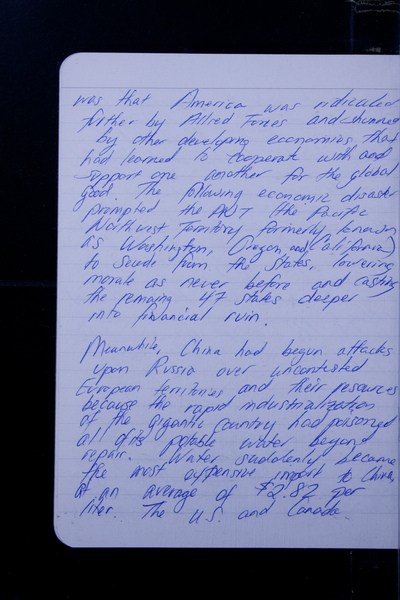 was that America was ridiculed
further by Allied Forces and shunned
by other developing economies that
had learned to cooperate with and
support one another for the global
good. The following economic disaster
prompted the PNT (the Pacific
Northwest Territory formerly known
as Washington, Oregon, and California)
to secede from the States, lowering
morale as never before and casting
the remaing 47 states deeper
into financial ruin.
Meanwhile, China had begun attacks
upon Russia over uncontested
European territories and their resources
because the rapid industrialization
of the gigantic country had poisoned
all of its potable water beyond
repair. Water suddenly became
the most expensive import to China,
at an average of $2.82 per
liter. The U.S. and Canada